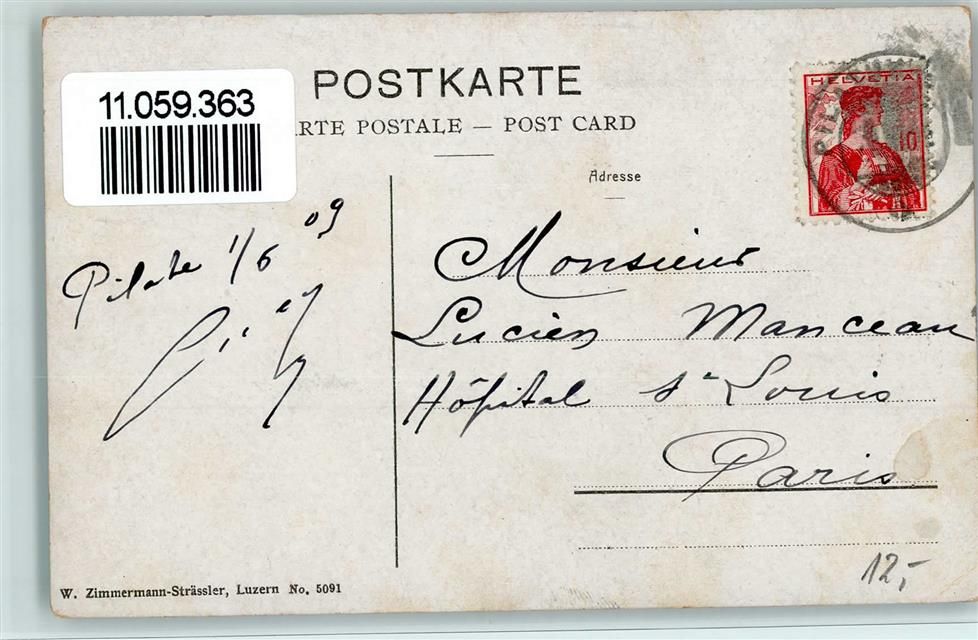 11.059.363
POSTKARTE
RTE POSTALE — POST CARD
Adresse
HELVETIA
10
PIL
Pilate 1/6 09
Monsieur
Lucien Manceau
Hôpital St Louis
Paris
12,-
W. Zimmermann-Strässler, Luzern No. 5091